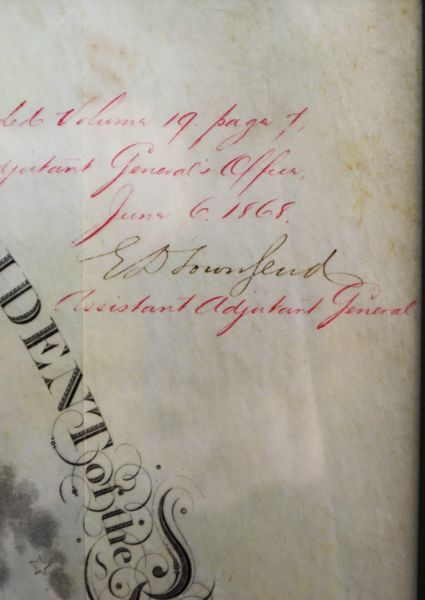 ded Volume 19. page 7,
djutant General's Office,
June 6. 1868.
E D Townsend
Assistant Adjutant General
IDENT of the